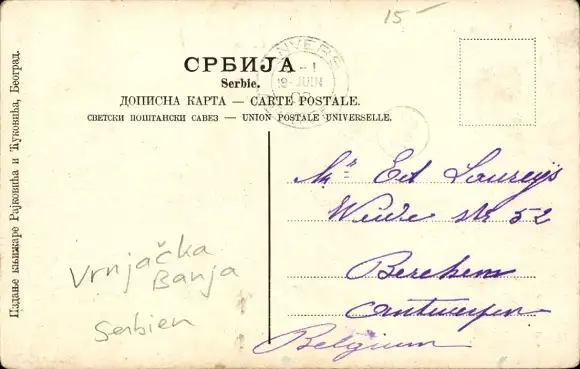 15 -
ANVERS
СРБИЈА
Serbie.
19 JUIN
ДОПИСНА КАРТА — CARTE POSTALE.
СВЕТСКИ ПОШТАНСКИ САВЕЗ — UNION POSTALE UNIVERSELLE.
Издање књижаре Рајковића и Ћуковића, Београд.
Mr Ed Laureys
str 52
Berchem
Antwerpen
Belgium
Vrnjačka
Banja
Serbien